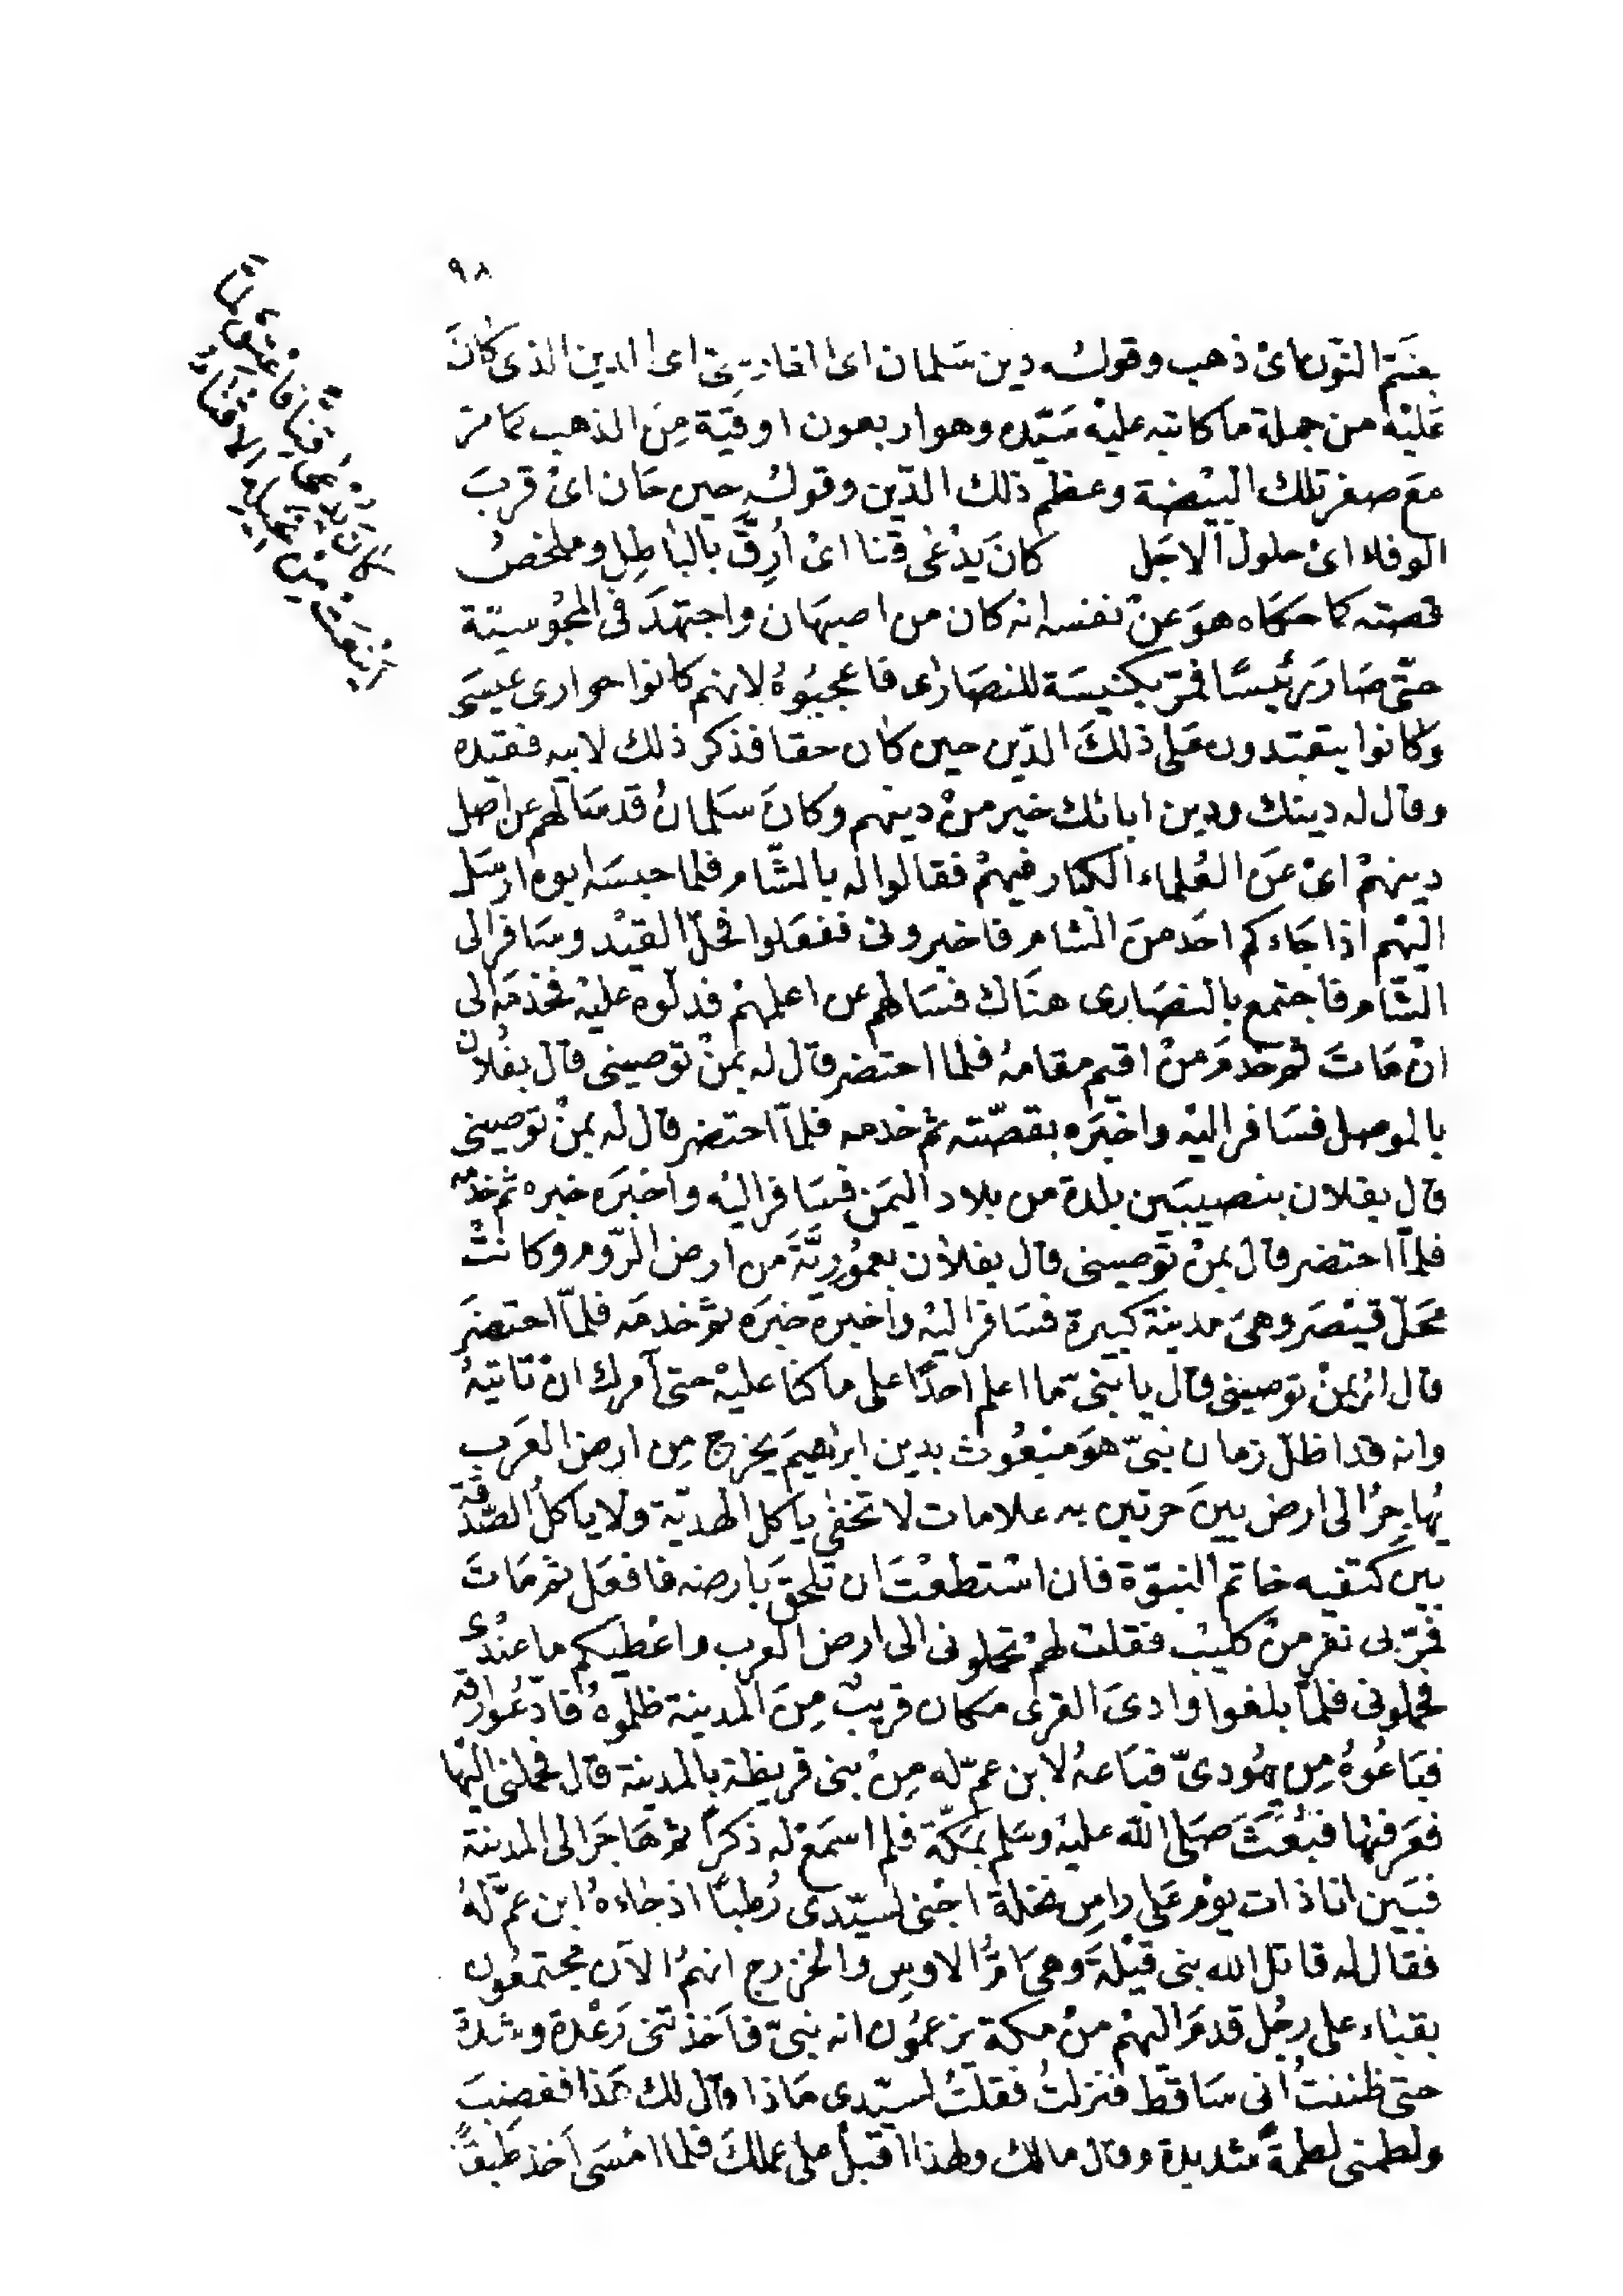 ٩٨
بفتح النون اى ذهب وقوله دين سلمان اى الفارسى اى الدين الذى كانَ
عَليْه من جملة ما كاتبه عليه سَيّده وهو اربعون اوقيّة مِنَ الذهب كما مرّ
معَ صغر تلك البيْضة وعظم ذلك الدّين وقوله حين حَان اىْ قربَ
الوفاء اىْ حلول الاجَل كانَ يدْعٰى قنا اىْ اُرِقَّ بالباطِل وملخصُ
قصته كما حكَاه هوَ عنْ نفسه انه كان من اصبهَان واجتهدَ فى المجُوسيّة
حتّى صَارَ رَئيسًا فمرّ بكنيسَة للنصَارٰى فاعجبُوهُ لانهم كانوا حوارى عيسَى
وكانوا يتعبّدون عَلى ذلكَ الدّين حين كان حقا فذكر ذلك لابيه فقيّده
وقال له دينك ودين ابائك خير منْ دينهم وكانَ سَلمانُ قد سَالهم عن اصل
دينهمْ اىْ عَن العُلماء الكبار فيهمْ فقالوا له بالشّام فلما حبسَه ابوه ارسَل
اليْهم اذا جَاءكم احَد منَ الشام فاخبرونى ففعَلوا فحلّ القيْد وسَافر الى
الشّام فاجتمع بالنصَارى هنَاك فسَالهم عن اعلمهمْ فدلّوه عليْه فخدمَه الى
انْ مَاتَ ثم خدمَ منْ اقيم مقامهُ فلما احتضر قال له بمنْ توصينى قال بفُلان
بالموصل فسَافر اليْه واخبَره بقصّته ثم خدمه فلمّا احتضر قال له بمنْ توصينى
قال بفلان بنصيبَين بلدة من بلاد اليمَن فسَافر اليْه واخبَره خبره ثم خدمه
فلمّا احتضر قال بمنْ تَوصينى قال بفلان بعمُوريَّةَ من ارض الرّوم وكانتْ
مَحَلّ قيْصَر وهىَ مدينة كبيرة فسَافر اليْه واخبره خبرَه ثم خدمَه فلمّا احتضرَ
قال الٰى منْ توصينى قال يا بنىّ ما اعلم احدًا على ما كنا عليْه حتى آمرك انْ تاتيَهُ
وانه قد اظلّ زمان نبىّ هوَ مبْعُوث بدين ابراهيمَ يخرج مِن ارض العَرب
يُهاجِرُ الى ارض بينَ حرتين به علامات لا تخفٰى ياكل الهديّة ولا ياكلُ الصّدقة
بين كتفيه خاتم النبوّة فان اسْتطعْتَ ان تلحقَ بارضه فافعَل ثم مَاتَ
فمَرّ بى نفر منْ كليْب فقلت لهمْ تحملونى الى ارض العرب واعْطيكم ما عنْدى
فحملونى فلمّا بلغوا وادىَ القرى مكان قريبٌ مِنَ المدينة ظلمُوهُ فادّعُوا رقه
فبَاعُوهُ مِن يهُودىّ فبَاعهُ لابن عمّ له مِنْ بنى قريظة بالمدينة قال فحملنى اليْها
فعَرفتها فبُعثَ صَلى الله عليْه وسَلم بمَكّة فلم اسمَعْ له ذكرًا ثم هَاجَر الى المدينة
فبَين انا ذات يوْم عَلى راس نخلة اجْنى لسيّدى رُطبًا اذ جَاءهُ ابن عمّ لهُ
فقال له قاتل الله بنى قيْلةَ وهىَ امُّ الاوس والخزرج انهمُ الآن مجتمعُون
بقبَاء على رجُل قدمَ اليْهمْ منْ مكة يزعمُون انه نبىّ فاَخذتنى رَعْدة وشدة
حتى ظننتُ انى سَاقط فنزلتُ فقلتُ لسيّدى مَاذا قال لك هَذا فغضِبَ
ولطمنى لطمةً شديدة وقال مالك ولهذا اقبلْ على عملكَ فلما امْسَى اَخذ طبقًا
كَانَ يُدْعٰى قِنًّا فاعْتِقَ لمَّا
اَيْنعَتْ مِنْ نخيله الاقْنَاءُ